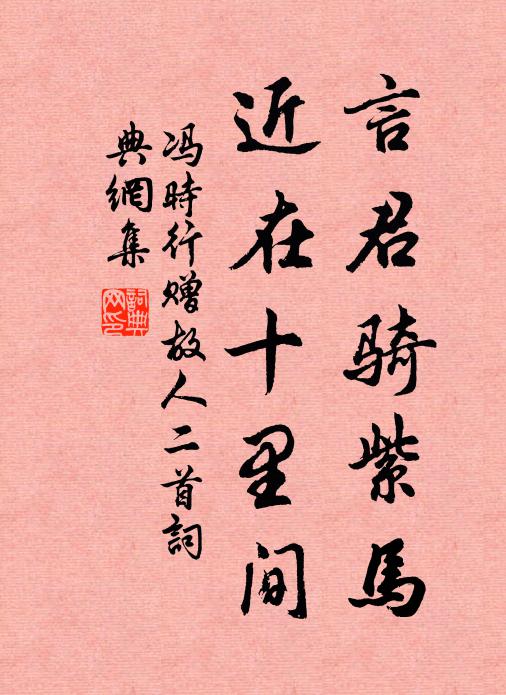 言君骑紫馬
近在十里间
冯時行赠故人二首詞
典網集
詞典
网印